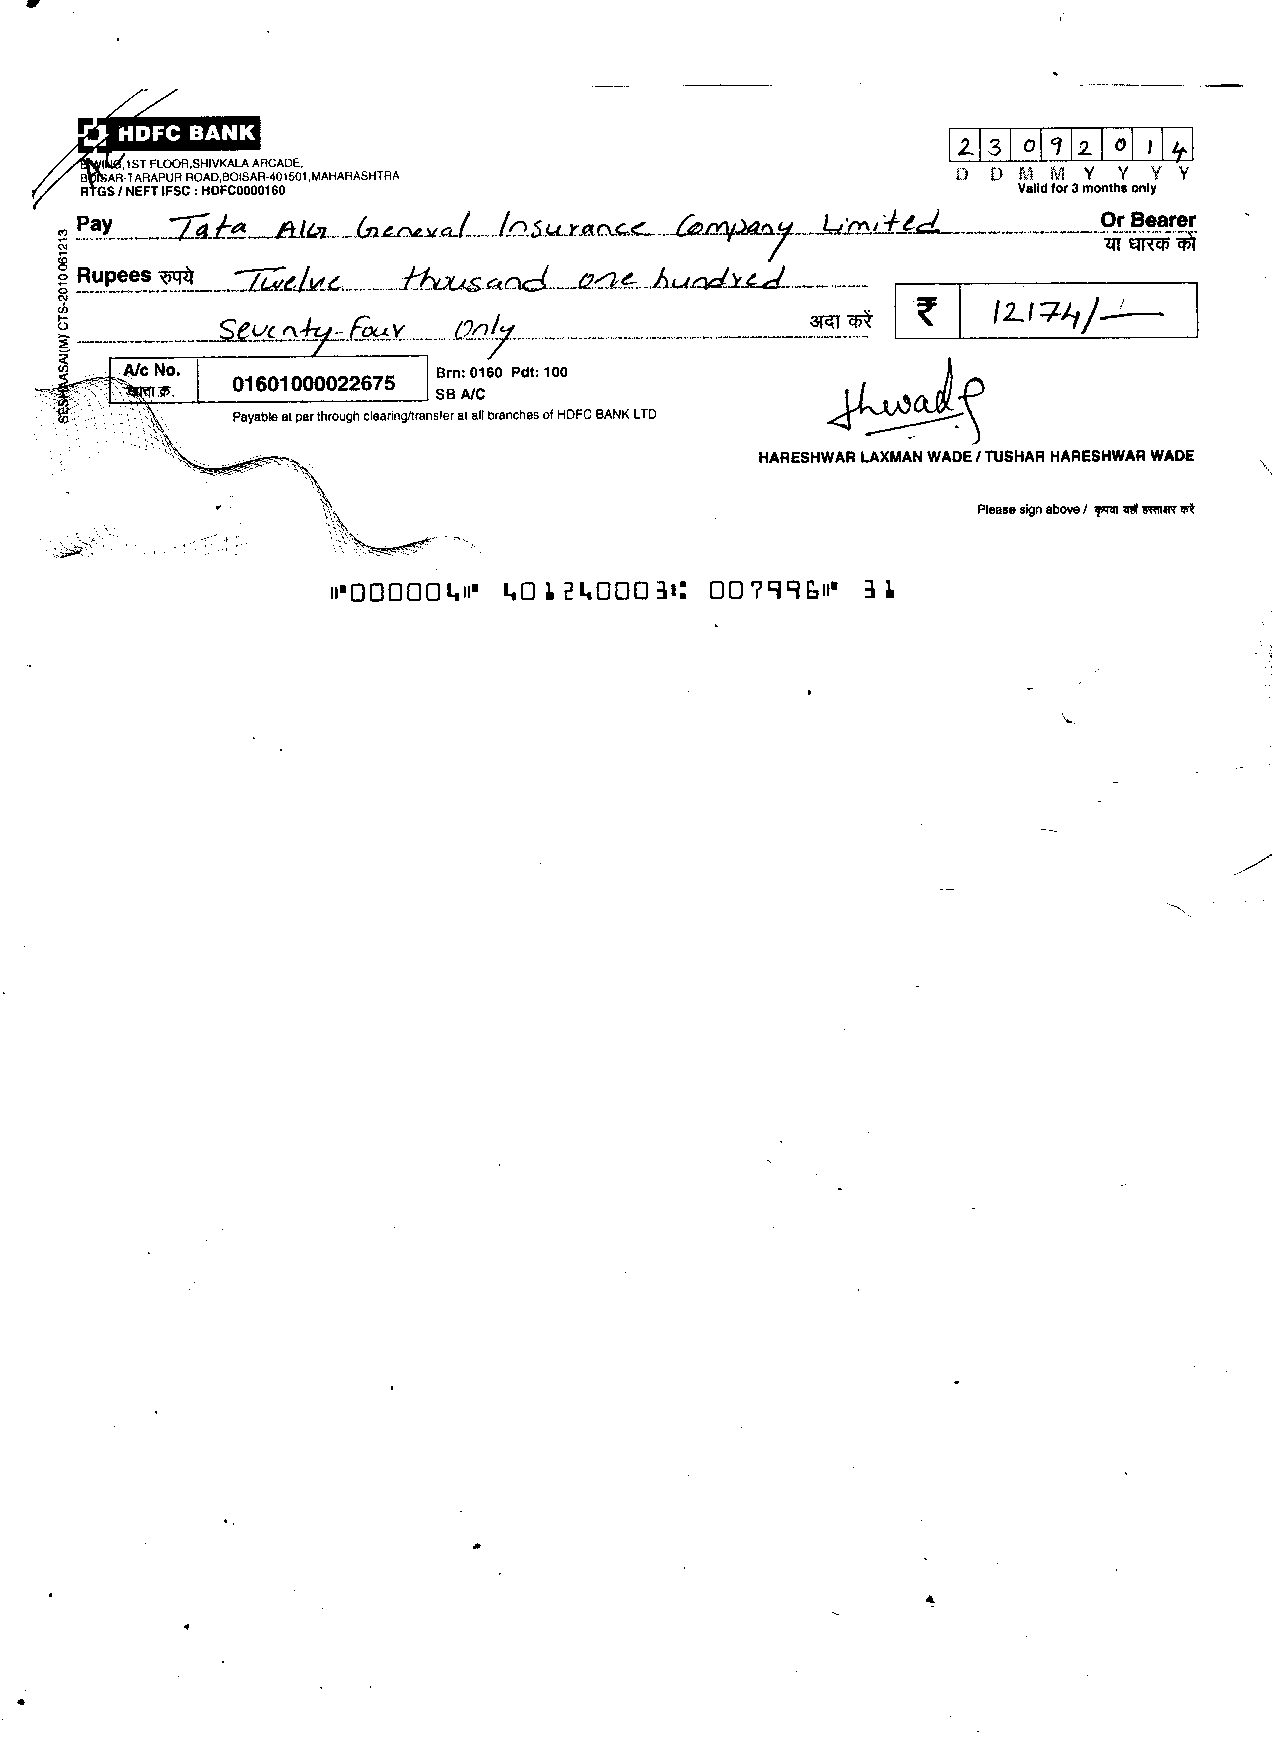 HDFC BANK
1ST FLOOR,SHIVKALA ARCADE,
BOISAR-TARAPUR ROAD,BOISAR-401501,MAHARASHTRA
RTGS / NEFT IFSC : HDFC0000160
2 3 0 9 2 0 1 4
D D M M Y Y Y Y
Valid for 3 months only
Pay Tata AIG General Insurance Company Limited Or Bearer
या धारक को
Rupees रुपये Twelve thousand one hundred
Seventy-Four Only अदा करें ₹ 12174/-
A/c No. 01601000022675
खाता क्र.
Brn: 0160 Pdt: 100
SB A/C
Payable at par through clearing/transfer at all branches of HDFC BANK LTD
Hwade
HARESHWAR LAXMAN WADE / TUSHAR HARESHWAR WADE
Please sign above / कृपया यहाँ हस्ताक्षर करें
⑈000004⑈ 401240003⑆ 007996⑈ 31
SESHAASAI(M) CTS-2010 061213